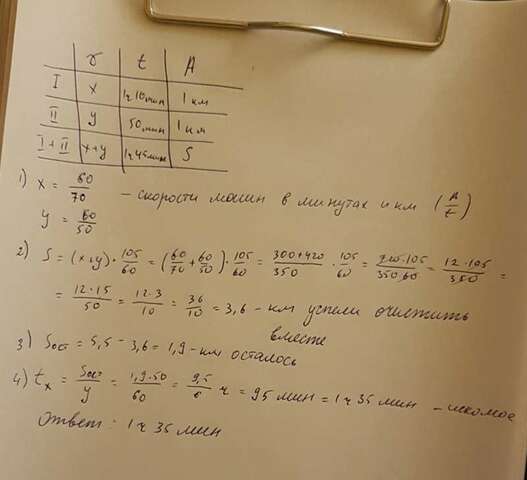 v t A
I x 1ч 10мин 1 км
II y 50 мин 1 км
I + II x+y 1ч 45мин S
1) x = 60/70 — скорости машин в минутах и км (A/t)
y = 60/50
2) S = (x+y) · 105/60 = (60/70 + 60/50) · 105/60 = 300+420/350 · 105/60 = 720·105/350·60 = 12·105/350 =
= 12·15/50 = 12·3/10 = 36/10 = 3,6 - км успели очистить
вместе
3) Sост = 5,5 - 3,6 = 1,9 - км осталось
4) tx = Sост/y = 1,9·50/60 = 9,5/6 ч = 95 мин = 1ч 35 мин - искомое
Ответ: 1ч 35 мин